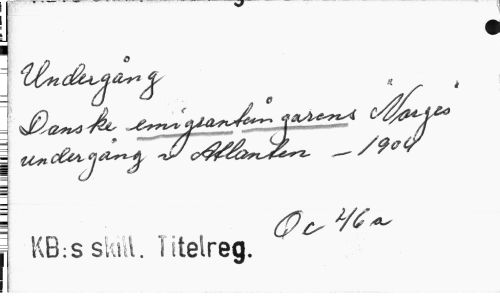 Undergång
Danske emigrantångarens "Norges"
undergång i Atlanten - 1904
Oc 46a
KB:s skill. Titelreg.